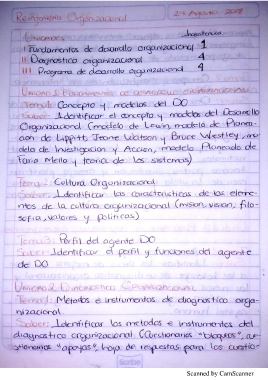 Reingeniería Organizacional
27 Agosto 2018
Unidades Inasistencia
I Fundamentos de desarrollo organizacional 1
II Diagnostico organizacional 4
III Programa de desarrollo organizacional 4
Unidad 1 Fundamentos de desarrollo organizacional
Tema 1: Concepto y modelos del DO
Saber: Identificar el concepto y modelos del Desarrollo
Organizacional (modelo de Lewin, modelo de Planea-
cion de Lippitt, Jeane Watson y Bruce Westley, mo
delo de Investigacion y Accion, modelo Planeado de
Faria Mello y teoria de los sistemas)
Tema 2: Cultura Organizacional
Saber: Identificar las caracteristicas de los eleme-
ntos de la cultura organizacional (mision, vision, filo-
sofia, valores y politicas)
Tema 3: Perfil del agente DO
Saber: Identificar el perfil y funciones del agente
de DO
Unidad 2 Diagnostico Organizacional
Tema 1: Metodos e instrumentos de diagnostico orga-
nizacional
Saber: Identificar los metodos e instrumentos del
diagnostico organizacional (Cuestionarios "bloqueos", cu-
stionarios "apoyos", hoja de respuestas para los cuestio-
Scribe
Scanned by CamScanner